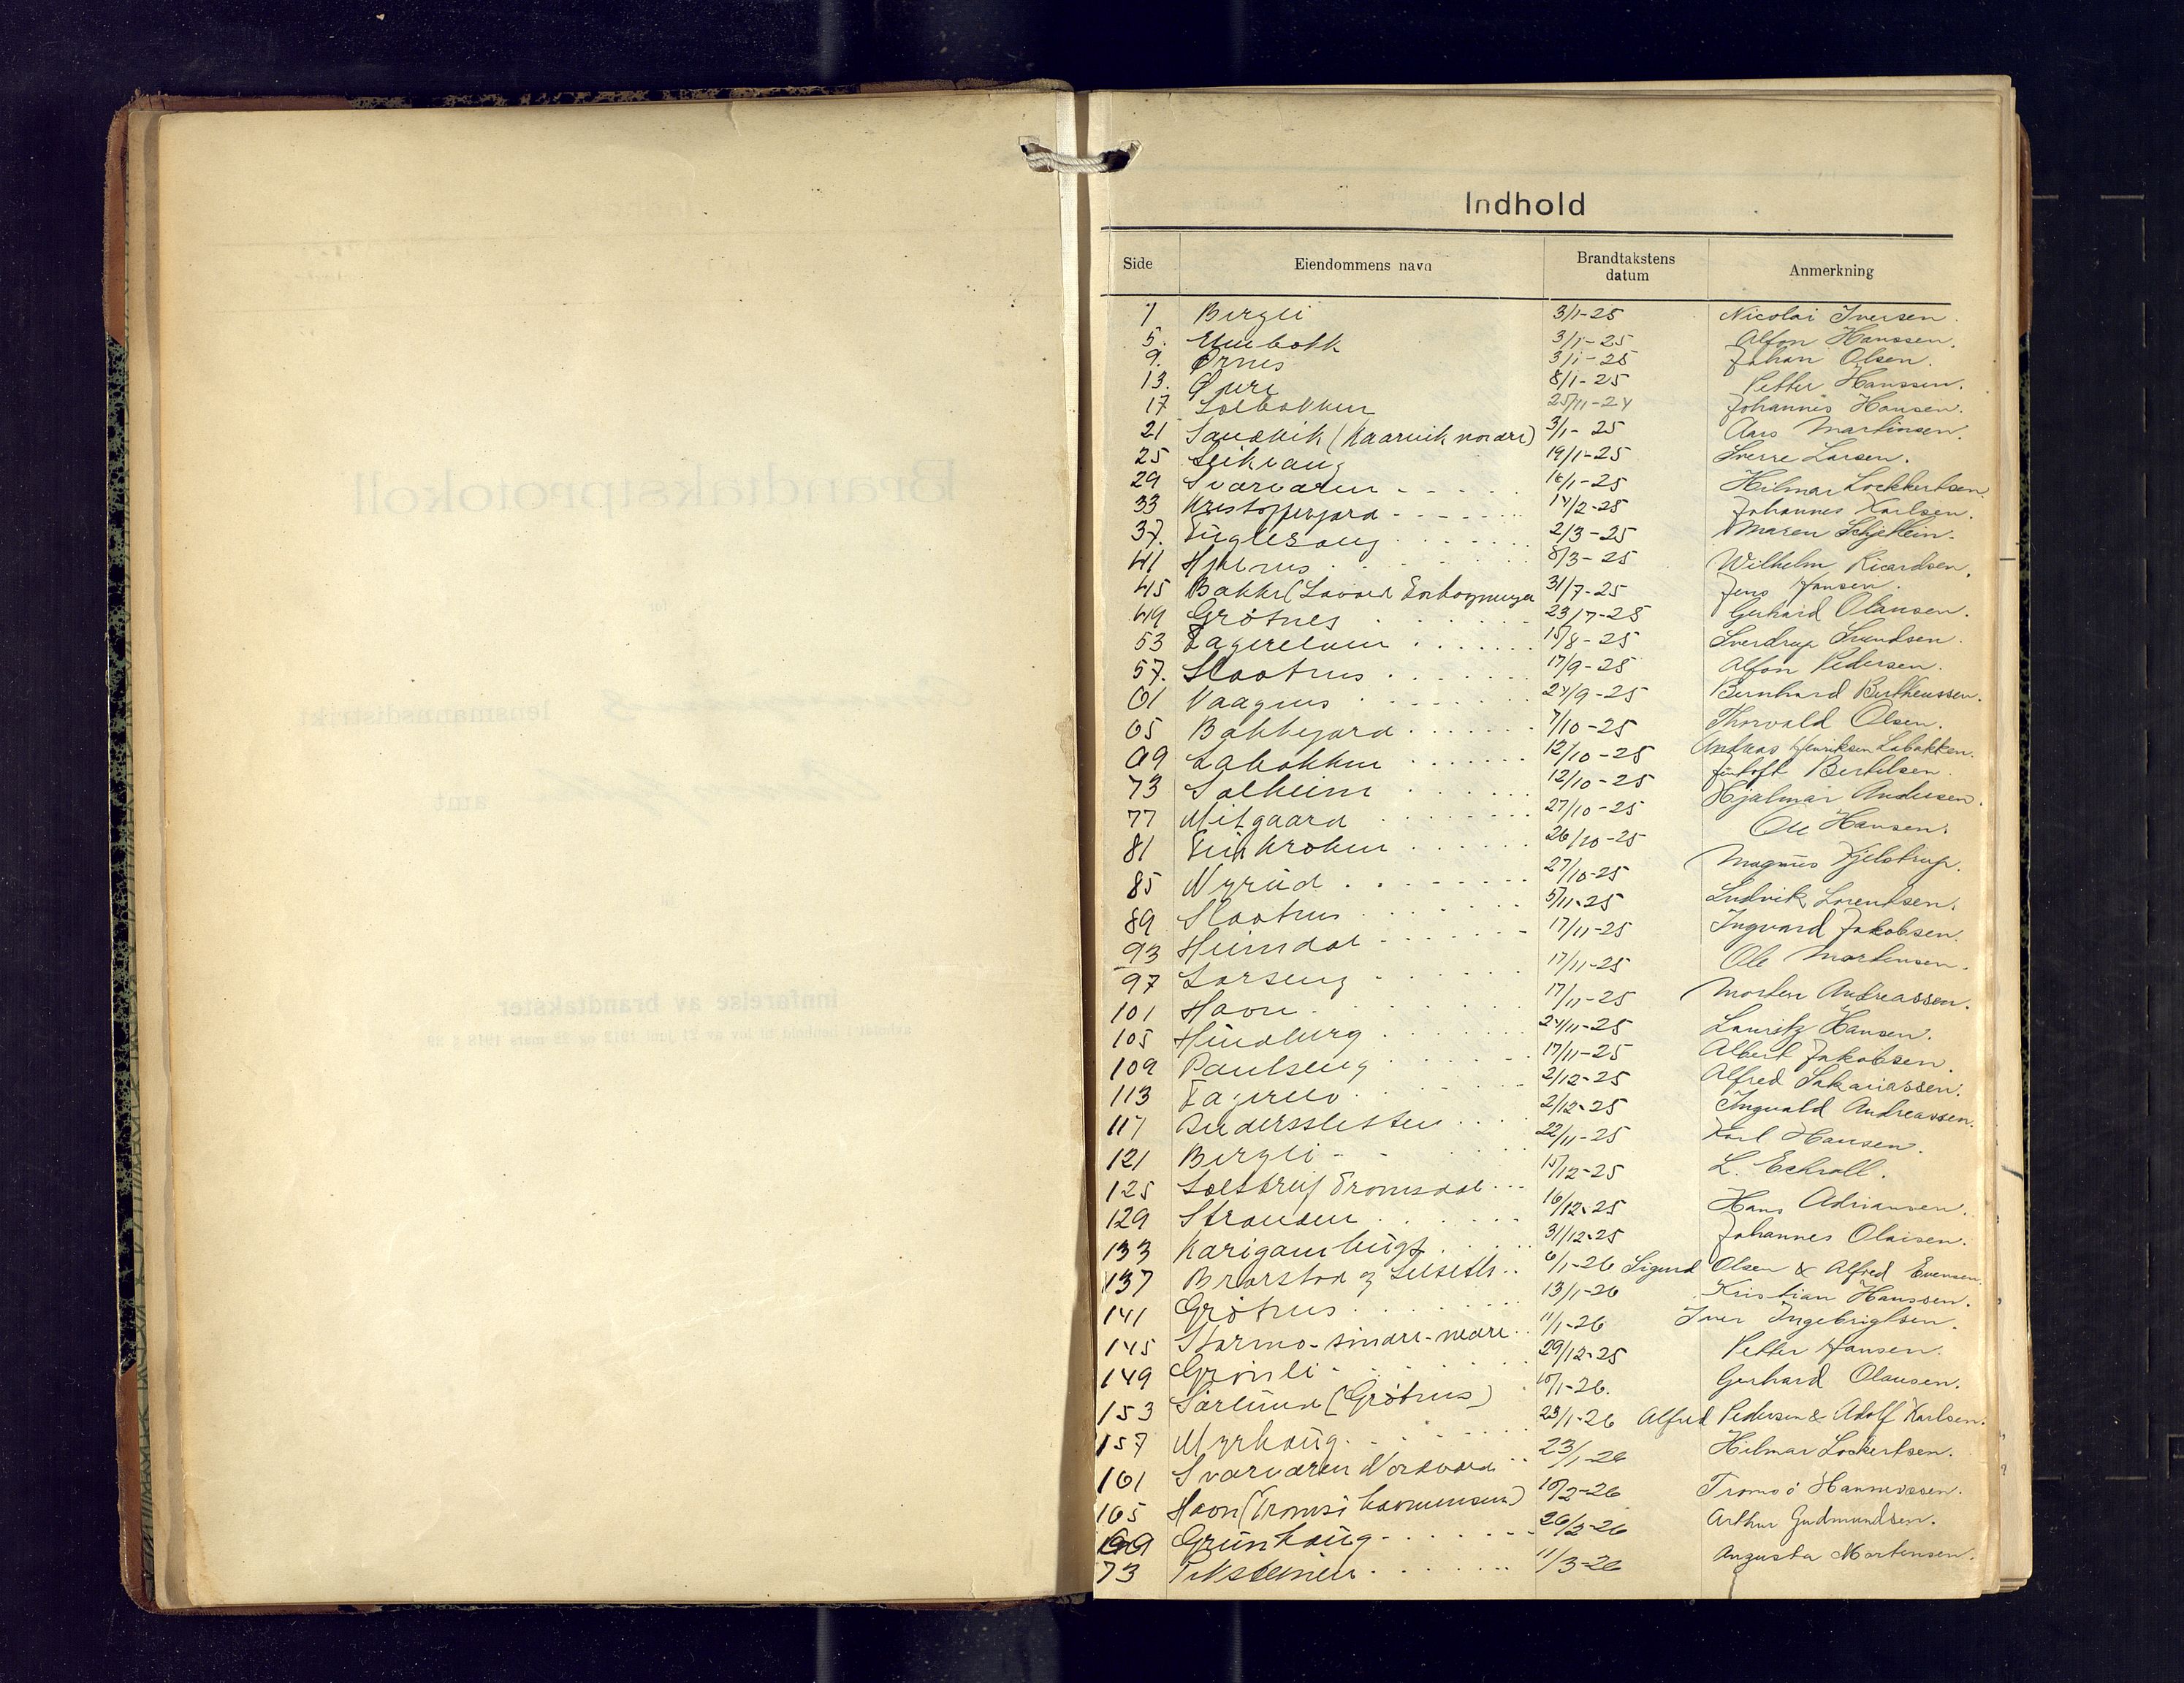 Indhold
Side Eiendommens navn Brandtakstens datum Anmerkning
1 Bergli 3/1-25 Nicolai Iversen.
5. 3/1-25 Alfon Hanssen.
9. Ørnes 3/1-25 Johan Olsen.
13. 8/1-25 Petter Hanssen.
17 Solbakken 25/11-24 Johannes Hansen.
21 Sandvik (Kaarvik nordre) 3/1-25 Aars Martinsen.
25 Leikvang 19/1-25 Sverre Larsen.
29 Svarvaren 16/1-25 Hilmar Lockertsen.
33 Kristoffergard 14/2-25 Johannes Karlsen.
37. Fuglesang 2/3-25 Maren Schjetlein.
41 8/3-25 Wilhelm Ricardsen.
45 Bakke 31/7-25 Jens Jansen.
49 Grøtnes 23/7-25 Gerhard Olausen.
53 15/8-25 Sverdrup
57. Slaatnes 17/9-25 Alfon Pedersen.
61 Vaagnes 24/9-25 Bernhard Bertheussen.
65 Bakkegard 7/10-25 Thorvald Olsen.
69 Labakken 12/10-25 Andreas Henriksen Labakken.
73 Solheim 12/10-25 Bertelsen.
77 Mitgaard 27/10-25 Hjalmar Andersen.
81 Finkroken 26/10-25 Ole Hansen.
85 Nyrud 27/10-25 Magnus Kjelstrup.
89 Slaatnes 5/11-25 Ludvik Lorentsen.
93 Heimdal 17/11-25 Ingvard Jakobsen.
97 Larseng 17/11-25 Ole Mortensen.
101 Havn 17/11-25 Morten Andreassen.
105 Hindberg 24/11-25 Lauritz Hansen.
109 Paulseng 17/11-25 Albert Jakobsen.
113 Fagerli 2/12-25 Alfred Sakariassen.
117 Anderssletten 2/12-25 Ingvald Andreassen.
121 Bergli 22/11-25 Karl Hansen.
125 Tromsdal 15/12-25 L. Echroll.
129 Stranden 16/12-25 Hans Adriansen.
133 31/12-25 Johannes Olaisen.
137 6/1-26 Sigurd Olsen & Alfred Evensen.
141 Grøtnes 13/1-26 Kristian Hanssen.
145 Stormo - - nedre 11/1-26 Iver Ingebrigtsen.
149 Grønli 29/12-25 Petter Jansen.
153 Sørlund (Grøtnes) 15/1-26. Gerhard Olausen.
157 Myrhaug 23/1-26 Alfred Pedersen & Adolf Karlsen.
161 Svarvaren 23/1-26 Hilmar Lockertsen.
165 Havn (Tromsø 10/2-26 Tromsø
169 Grønhaug 26/2-26 Arthur Gudmundsen.
73 11/3-26 Augusta Mortensen.